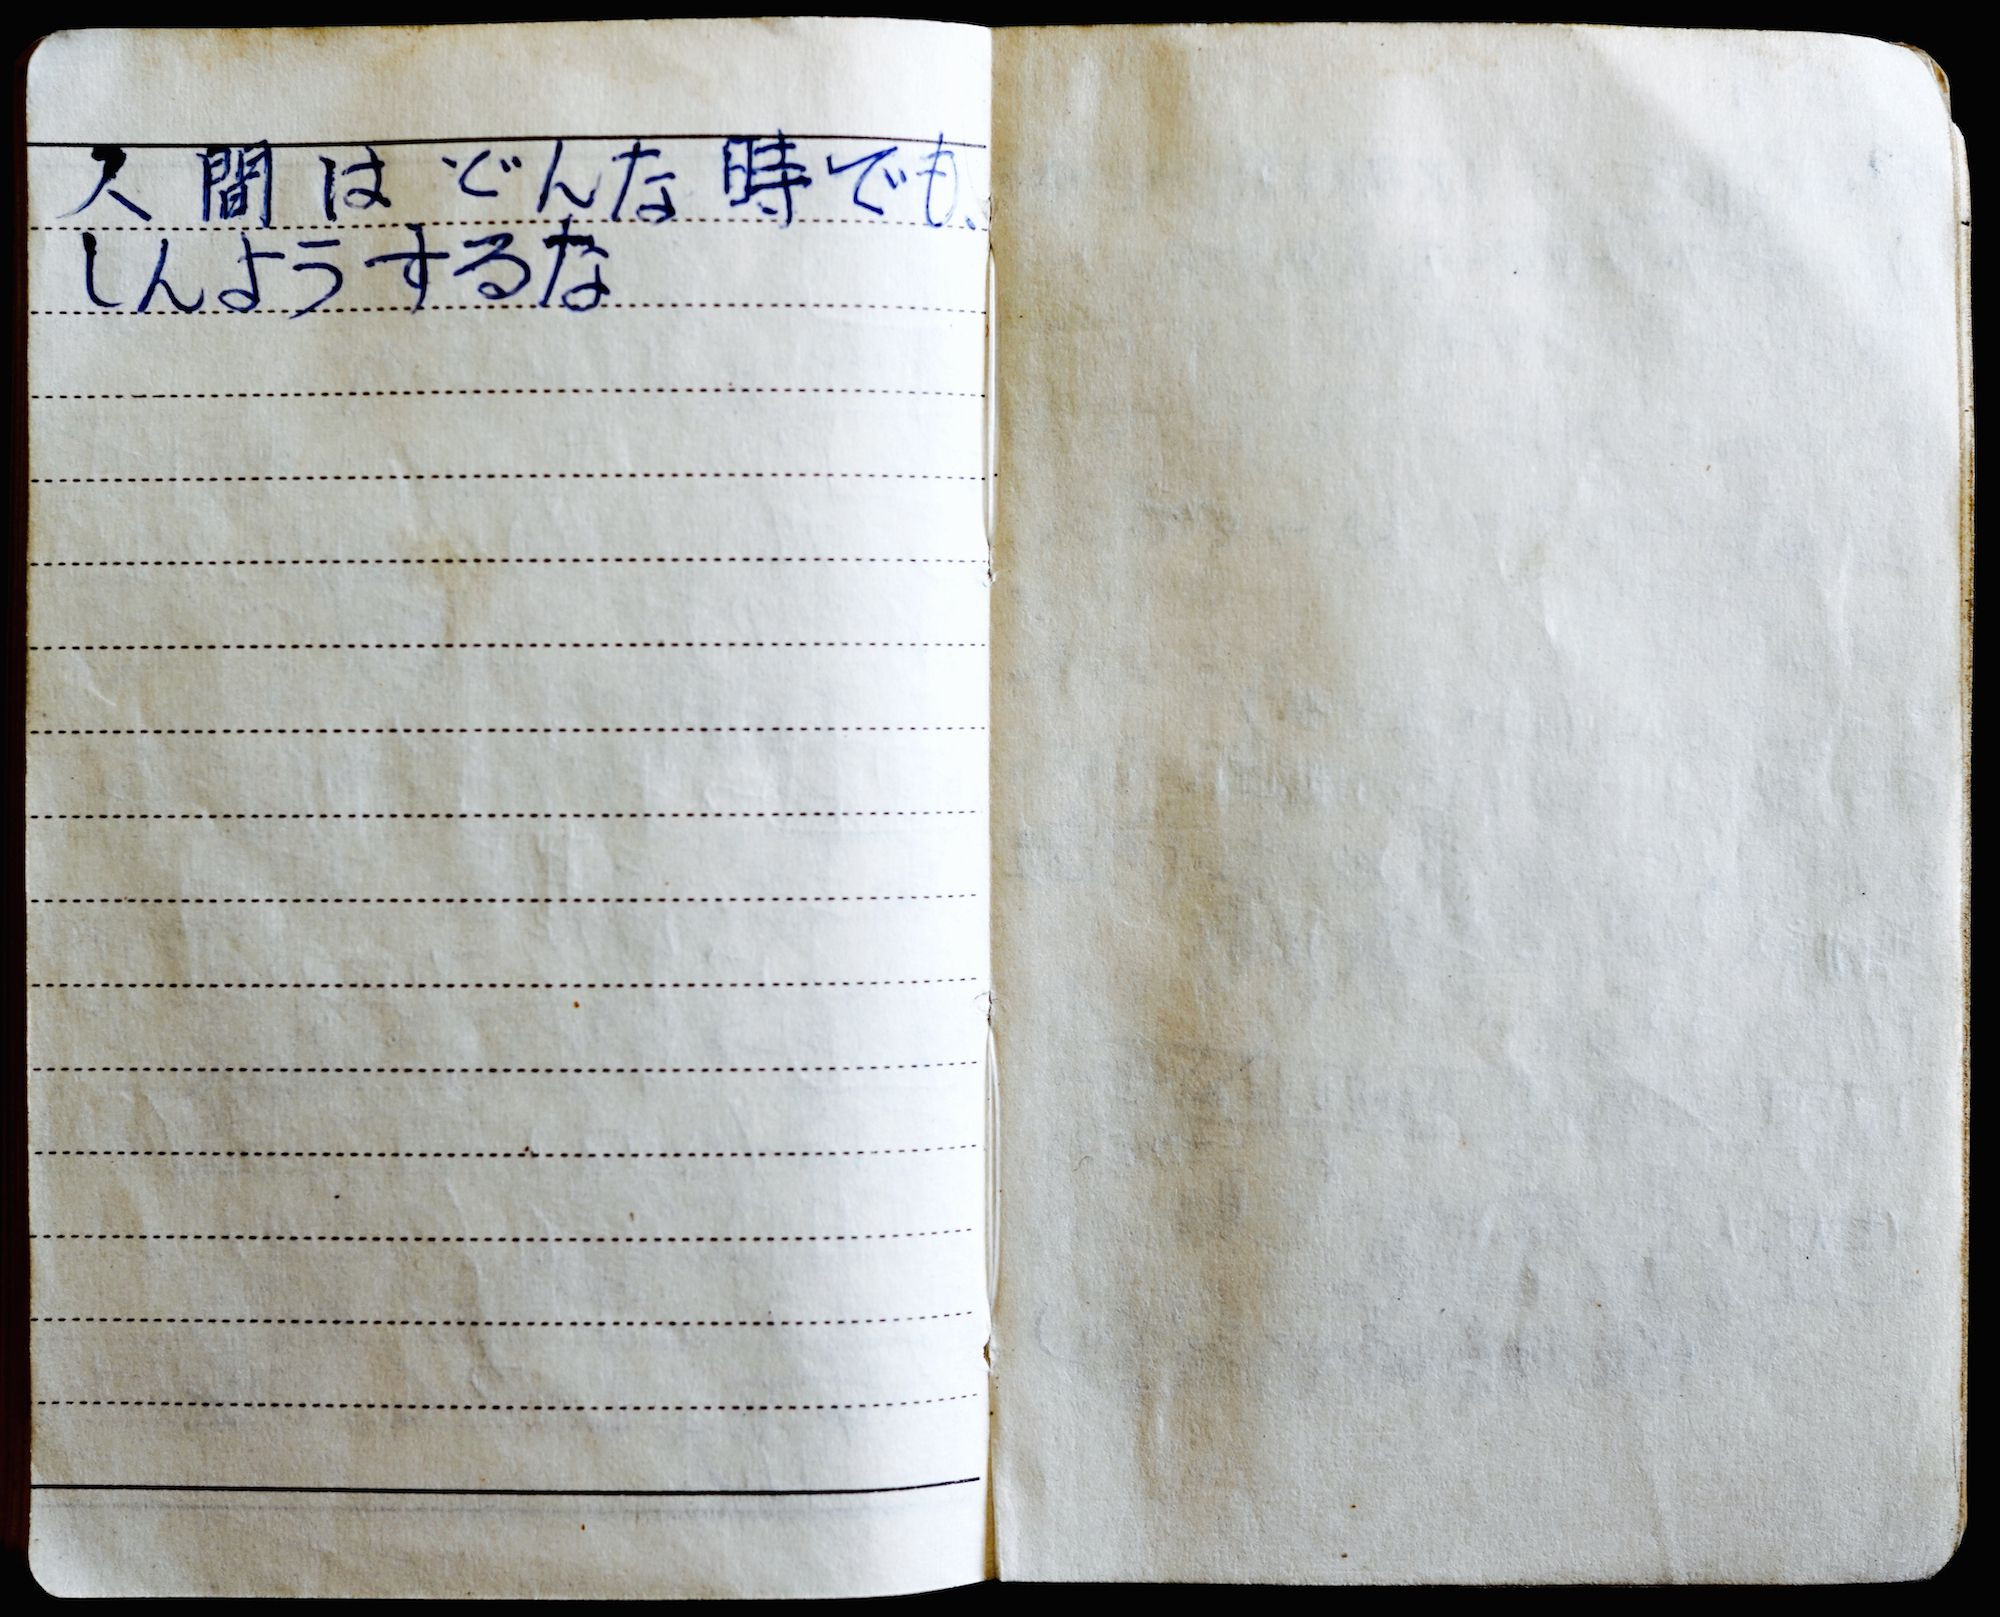 人間はどんな時でも、
しんようするな